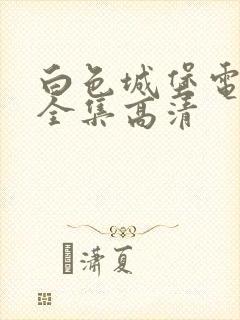 白色城堡电
全集高清
潇夏